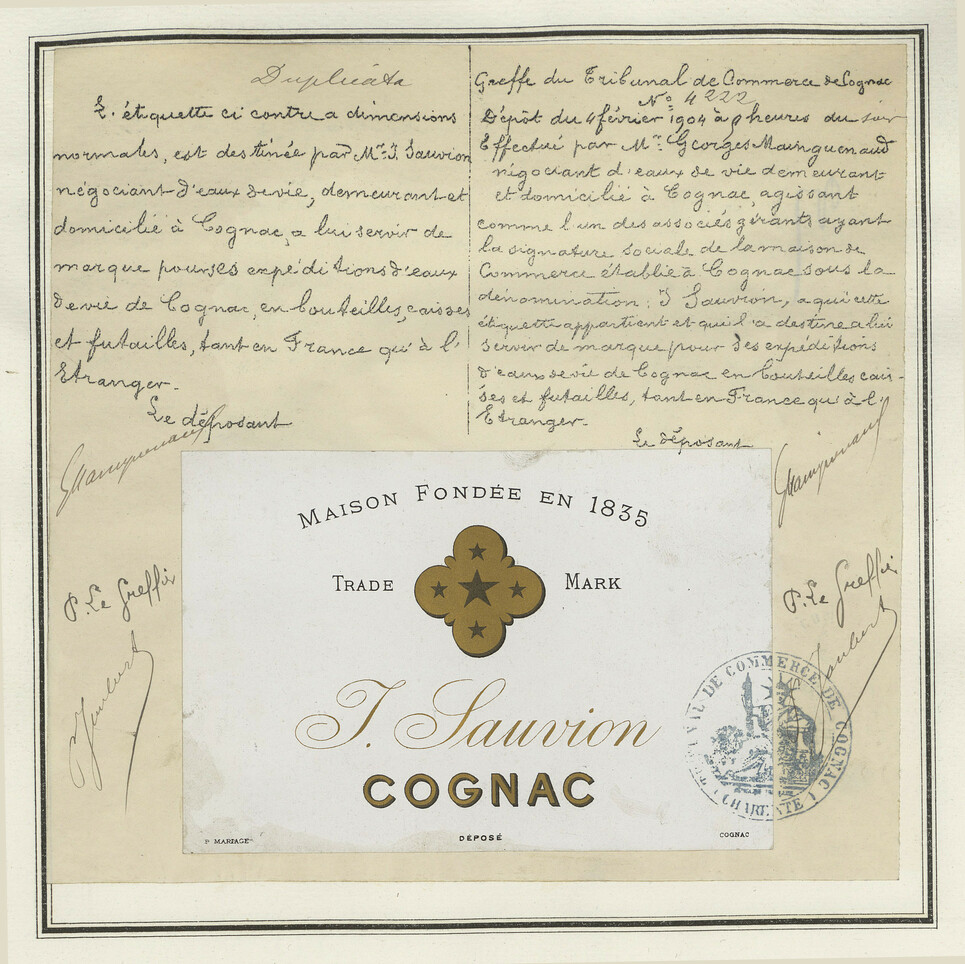 Duplicata
L'étiquette ci contre a dimensions
normales, est destinée par Mr. J. Sauvion
négociant d'eaux de vie, demeurant et
domicilié à Cognac, a lui servir de
marque pour ses expéditions d'eaux
de vie de Cognac, en bouteilles, caisses
et futailles, tant en France qu'à l'
Etranger.
Le déposant
GMainguenaud
P. Le Greffier
Greffe du Tribunal de Commerce de Cognac
No. 4222
Dépôt du 4 février 1904 à heures du soir
Effectué par Mr. Georges Mainguenaud
négociant d'eaux de vie demeurant
et domicilié à Cognac, agissant
comme l'un des associés gérants ayant
la signature sociale de la maison de
Commerce établie à Cognac sous la
dénomination: J Sauvion, a qui cette
étiquette appartient et qui l'a destine a lui
servir de marque pour ses expéditions
d'eaux de vie de Cognac en bouteilles cais-
ses et futailles, tant en France qu'à l'
Etranger.
Le déposant
GMainguenaud
P. Le Greffier
MAISON FONDÉE EN 1835
TRADE MARK
J. Sauvion
COGNAC
DÉPOSÉ
P MARIAGE
COGNAC
TRIBUNAL DE COMMERCE DE COGNAC
(CHARENTE)